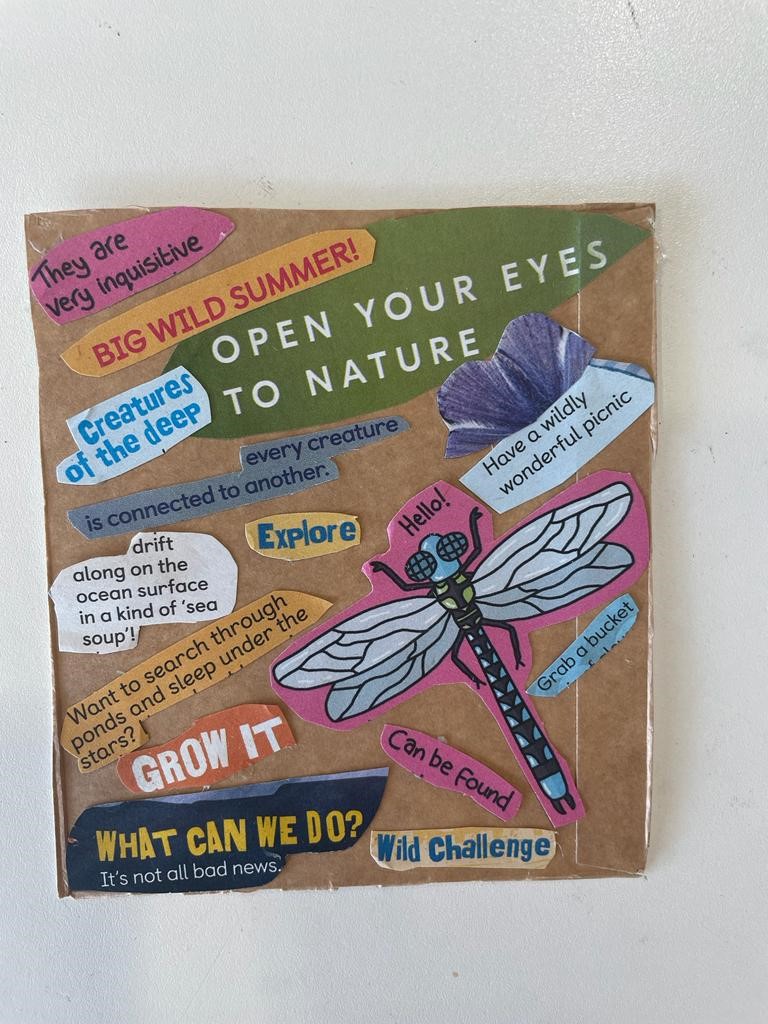 They are
very inquisitive
BIG WILD SUMMER!
OPEN YOUR EYES
TO NATURE
Creatures
of the deep
every creature
is connected to another.
Have a wildly
wonderful picnic
Hello!
Explore
drift
along on the
ocean surface
in a kind of ‘sea
soup’!
Want to search through
ponds and sleep under the
stars?
Grab a bucket
GROW IT
Can be found
WHAT CAN WE DO?
It's not all bad news.
Wild Challenge